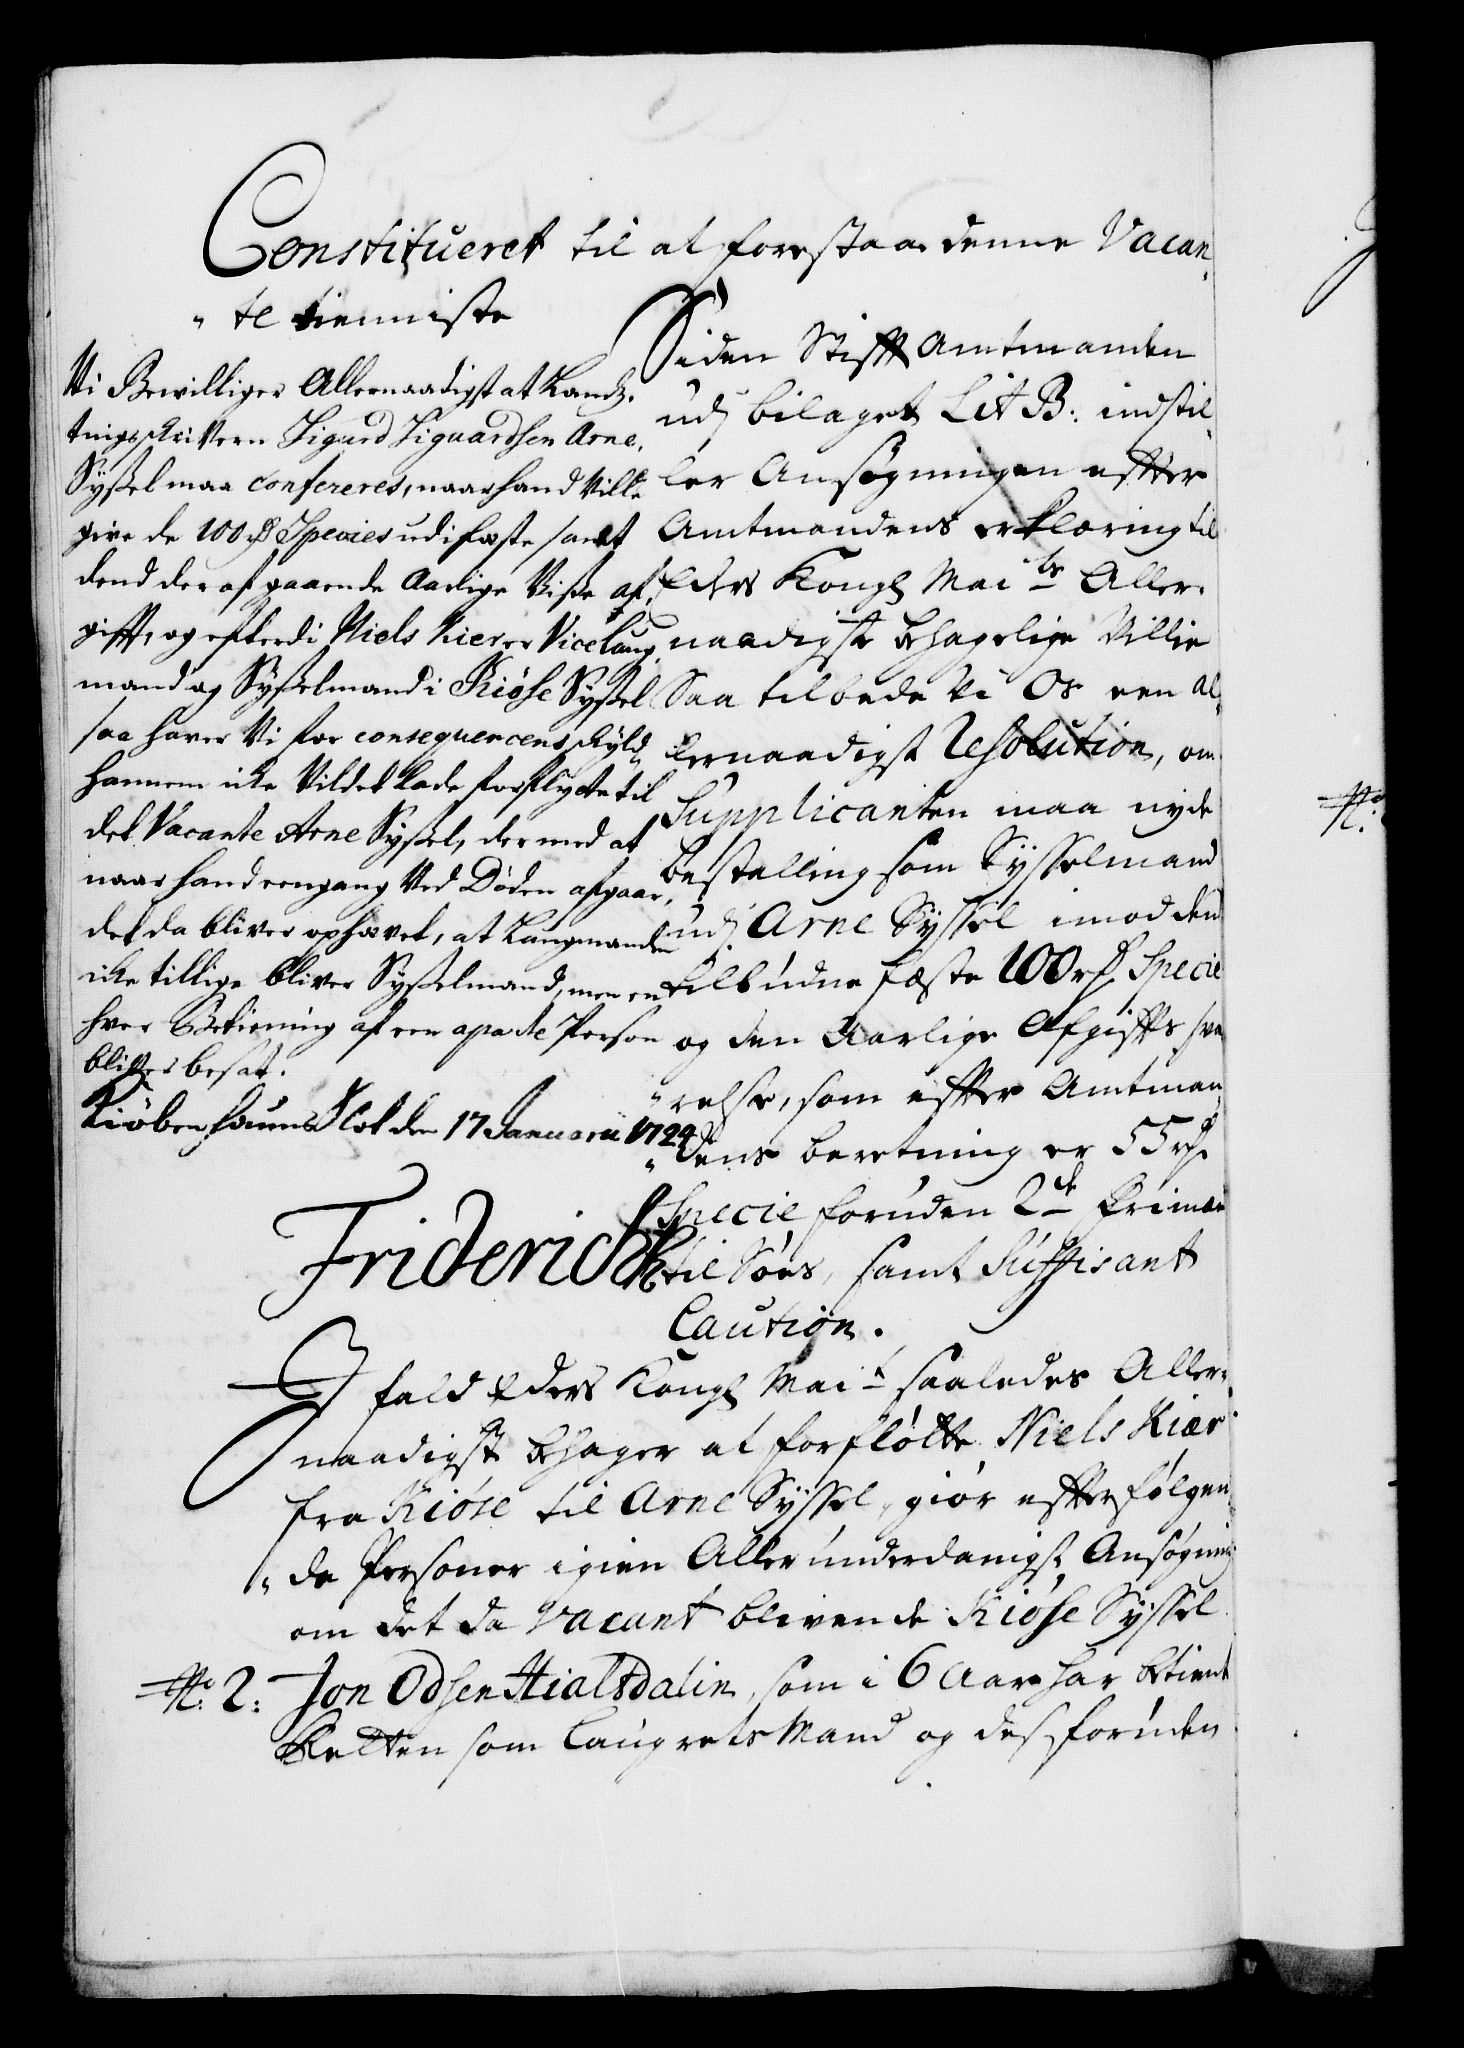 Constitueret til at forestaa denne Vacan-
"te tienniste
Vi Bewilliger Allernaadigst at Landz-
tingsskrivern Sigurd Siguardsen Arne-
Syssel maa confereres, naar hand Ville
give de 100 rd Specier udi fæste samt
dend der af gaaende Aarlige Visse af-
gifft, og efterdi Niels Kier er Vicelaug-
mand og Sysselmand i Kiøse Syssel
saa haver Vi for consequencens skyld
hannem icke Vildet lade forflytte til
det Vacante Arne Syssel, der med at
naar hand eengang Ved Døden afgaar,
det da bliver ophævet, at Laugmanden
icke tillige bliver Sysselmand, men en
hver Betiening af een aparte Person
bliver besat.
Kiøbenhauns Slot den 17 Januarii 1724
Friderich R
Siden Stifft Amtmanden
udj bilaget Lit B: indstil-
ler Ansøgningen effter
Amtmandens erklæring til
Eders Kongl Maits Aller-
naadigste behagelige Villie
Saa tilbede Vi Os een al-
lernaadigst Resolution, om
Supplicanten maa nyde
bestalling som Sysselmand
udj Arne Syssel imod den
tilbudne fæste 100 rd Specie
og den Aarlige Afgiffts sva-
"relse, som effter Amtman-
"dens beretning er 55 rd
Specie foruden 2de
til Søes, samt Suffisant
Caution.
I fald Eders Kongl Mait saaledes Aller-
naadigst behager at forfløtte Niels Kiær
fra Kiøse til Arne Syssel, giør effterfølgen-
"de Personer igien Aller underdanigst Ansøgning
om det da Vacant blivende Kiøse Syssel
No. 2: Jon Odsen Hialtdalin, som i 6 Aar har betient
Retten som Laugrets Mand og desforuden